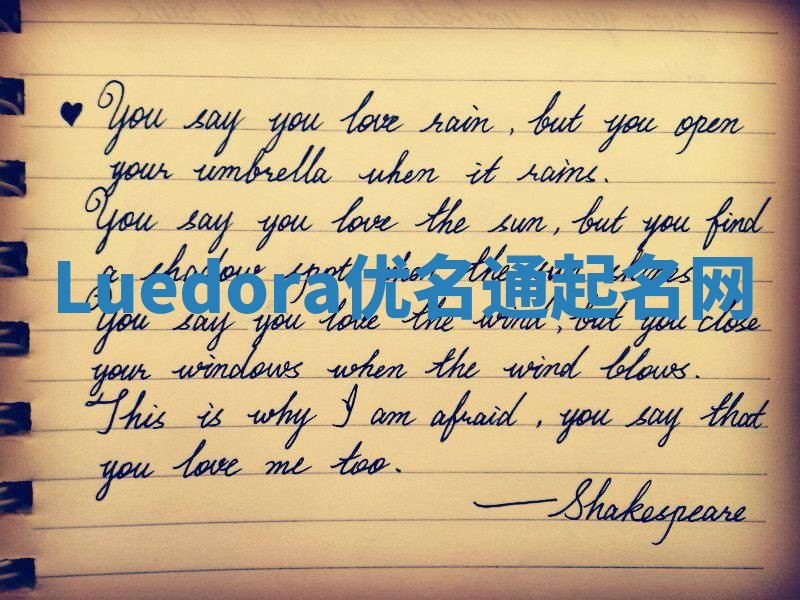 ♥ You say you love rain, but you open
your umbrella when it rains.
You say you love the sun, but you find
a shadow spot when the sun shines
Luedora优名通起名网
You say you love the wind, but you close
your windows when the wind blows.
This is why I am afraid, you say that
you love me too.
—Shakespeare